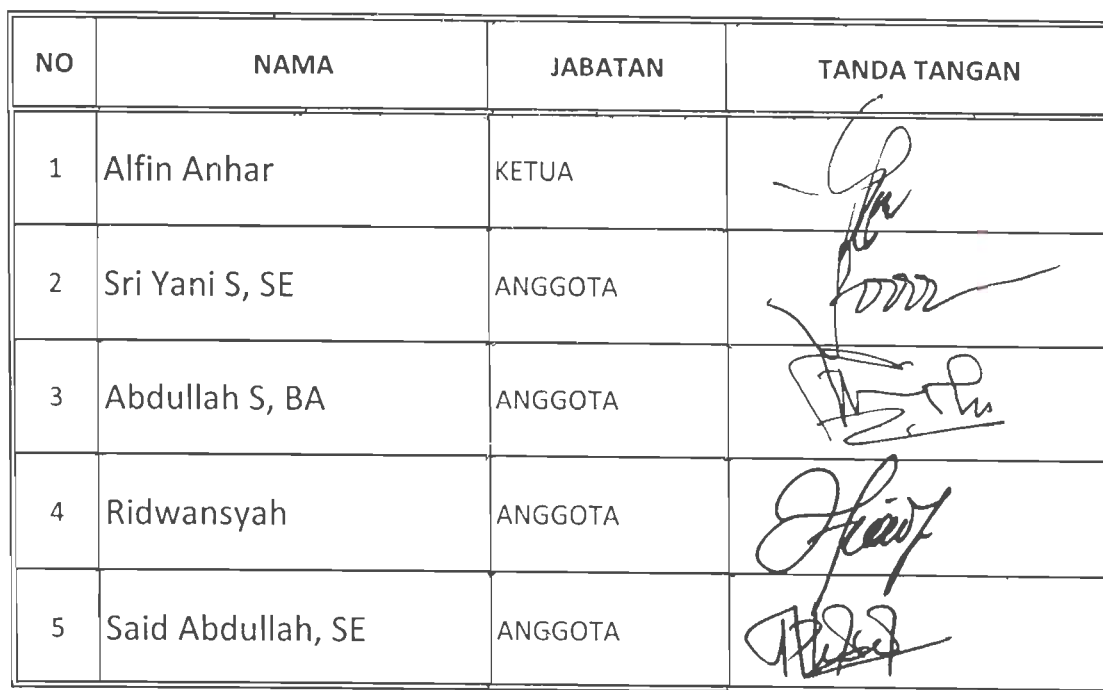 NO NAMA JABATAN TANDA TANGAN
1 Alfin Anhar KETUA
2 Sri Yani S, SE ANGGOTA
3 Abdullah S, BA ANGGOTA
4 Ridwansyah ANGGOTA
5 Said Abdullah, SE ANGGOTA